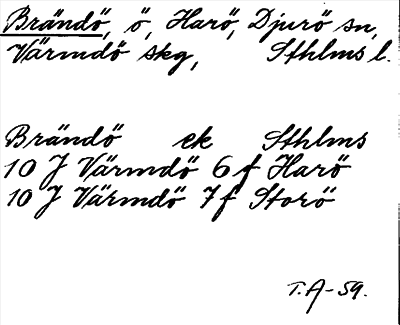 Brändö, ö, Harö, Djurö sn,
Värmdö skg, Sthlms l.
Brändö ek Sthlms
10 J Värmdö 6 f Harö
10 J Värmdö 7 f Storö
T.A-59.